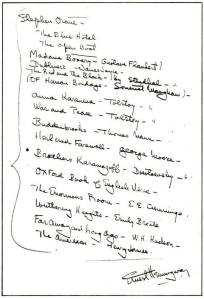 Stephen Crane -
The Blue Hotel
The Open Boat
Madame Bovary - Gustave Flaubert
Dubliners - Joyce
The Red and the Black - By Stendhal -
(Of Human Bondage - Somerset Maugham)
Anna Karenina - Tolstoy - "
War and Peace - Tolstoy - "
Buddenbrooks - Thomas Mann - "
Hail and Farewell - George Moore -
Brothers Karamazoff - Dostoevsky -
Oxford Book of English Verse -
The Enormous Room - E.E. Cummings
Wuthering Heights - Emily Bronte
Far Away and Long Ago - W.H. Hudson -
The American - Henry James.
Ernest Hemingway